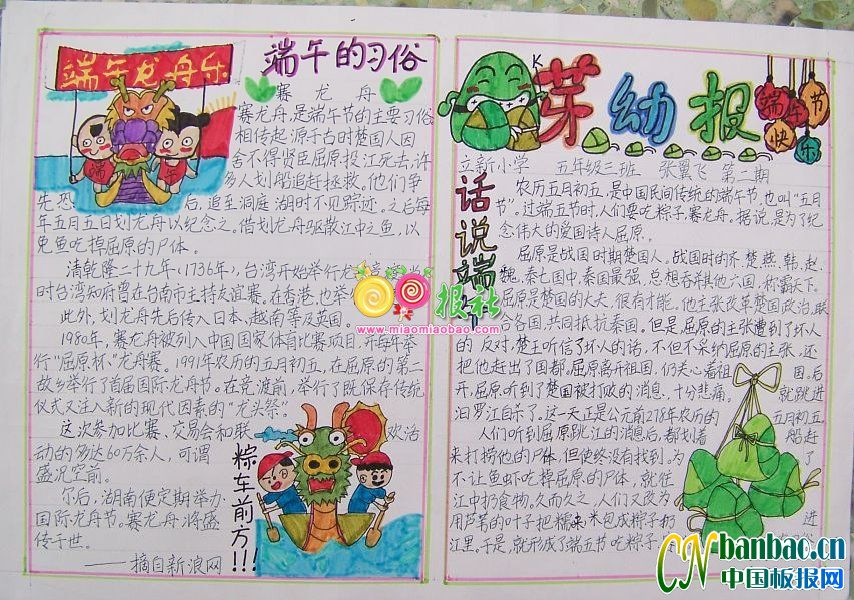 端午龙舟乐
端午的习俗
端
午
赛龙舟
赛龙舟,是端午节的主要习俗
相传起源于古时楚国人因
舍不得贤臣屈原投江死去,许
多人划船追赶拯救。他们争
先恐后,追至洞庭湖时不见踪迹。之后每
年五月五日划龙舟以纪念之。借划龙舟驱散江中之鱼,以
免鱼吃掉屈原的尸体。
清乾隆二十九年(1736年),台湾开始举行龙
时台湾知府曾在台南市主持友谊赛。在香港,也举
此外,划龙舟先后传入日本、越南等及英国。
1980年,赛龙舟被列入中国国家体育比赛项目,并每年举
行“屈原杯”龙舟赛。1991年农历的五月初五,在屈原的第二
故乡举行了首届国际龙舟节。在竞渡前,举行了既保存传统
仪式又注入新的现代因素的“龙头祭。
这次参加比赛、交易会和联欢活
动的多达60万余人,可谓
盛况空前。
尔后,湖南便定期举办
国际龙舟节。赛龙舟将盛
传于世。
——摘自新浪网
粽车前方!!!
K
芽幼报
端午节
快乐
立新小学 五年级三班 张翼飞 第二期
话说端午
农历五月初五,是中国民间传统的端午节,也叫“五月
节”。过端五节时,人们要吃粽子,赛龙舟。据说,是为了纪
念伟大的爱国诗人屈原。
屈原是战国时期楚国人。战国时的齐、楚、燕、韩、赵、
魏、秦七国中,秦国最强,总想吞并其他六国,称霸天下。
屈原是楚国的大夫,很有才能。他主张改革楚国政治,联
合各国,共同抵抗秦国。但是,屈原的主张遭到了坏人
的反对,楚王听信了坏人的话,不但不采纳屈原的主张,还
把他赶出了国都。屈原离开祖国,仍关心着祖国。后
来,屈原听到了楚国被打败的消息,十分悲痛。就跳进
汨罗江自杀了。这一天正是公元前278年农历的五月初五。
人们听到屈原跳江的消息后,都划着船赶了
来打捞他的尸体,但使终没有找到。为了
不让鱼虾吃掉屈原的尸体,就往
江中扔食物。久而久之,人们又改为
用芦苇的叶子把糯米包成粽子扔进
江里。于是,就形成了端五节吃粽子、
报社
www.miaomiaobao.com
CNbanbao.cn
中国板报网